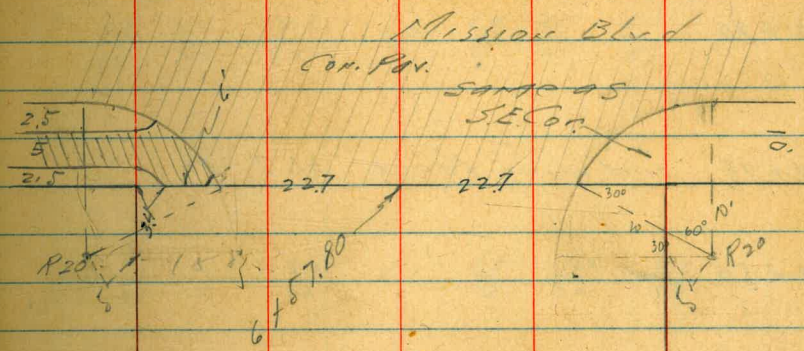 Mission Blvd
Con. Pav.
Same as
S.E. Cor.
2.5
5
2.5
22.7
22.7
30°
10
60°
10'
30
R20
R20
6+57.80